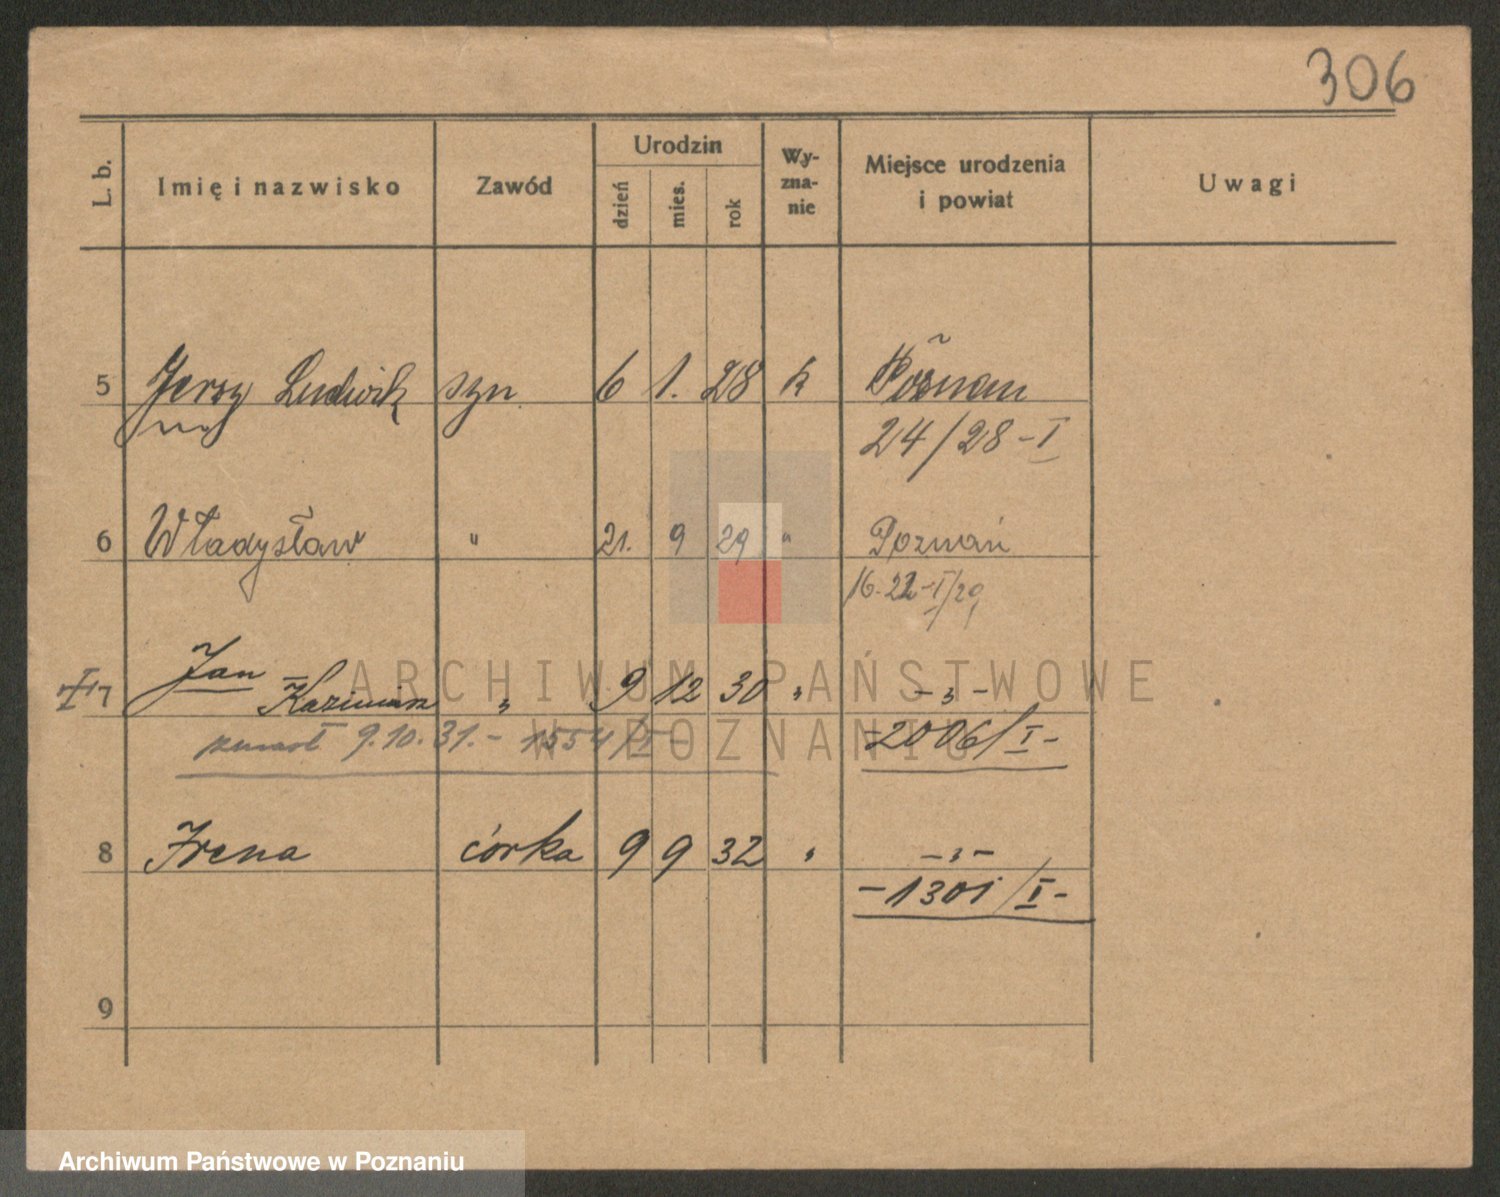 306
L. b. Imię i nazwisko Zawód Urodzin dzień mies. rok Wy-zna-nie Miejsce urodzenia i powiat Uwagi
5 Jerzy Ludwik syn 6 1. 28 k Poznań
24/28-I
6 Władysław " 21. 9 29 " Poznań
16.22-I/29
7 Jan Kazimierz " 9 12 30 " -"-
zmarł 9.10.31.- 1554/I- -2006/I-
8 Irena córka 9 9 32 " -"-
-1301/I-
9
ARCHIWUM PAŃSTWOWE
W POZNANIU
Archiwum Państwowe w Poznaniu